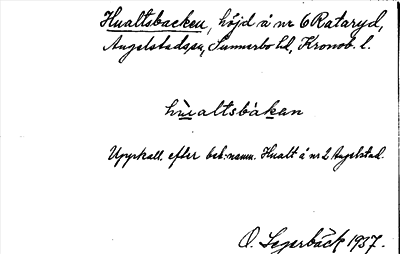 Hualtsbacken, höjd å nr 6 Rataryd,
Angelstads sn, Sunnerbo hd, Kronob. l.
hùaltsbákan
Uppkall. efter beb.-namn. Hualt å nr 2 Angelstad.
O. Segerbäck 1937.